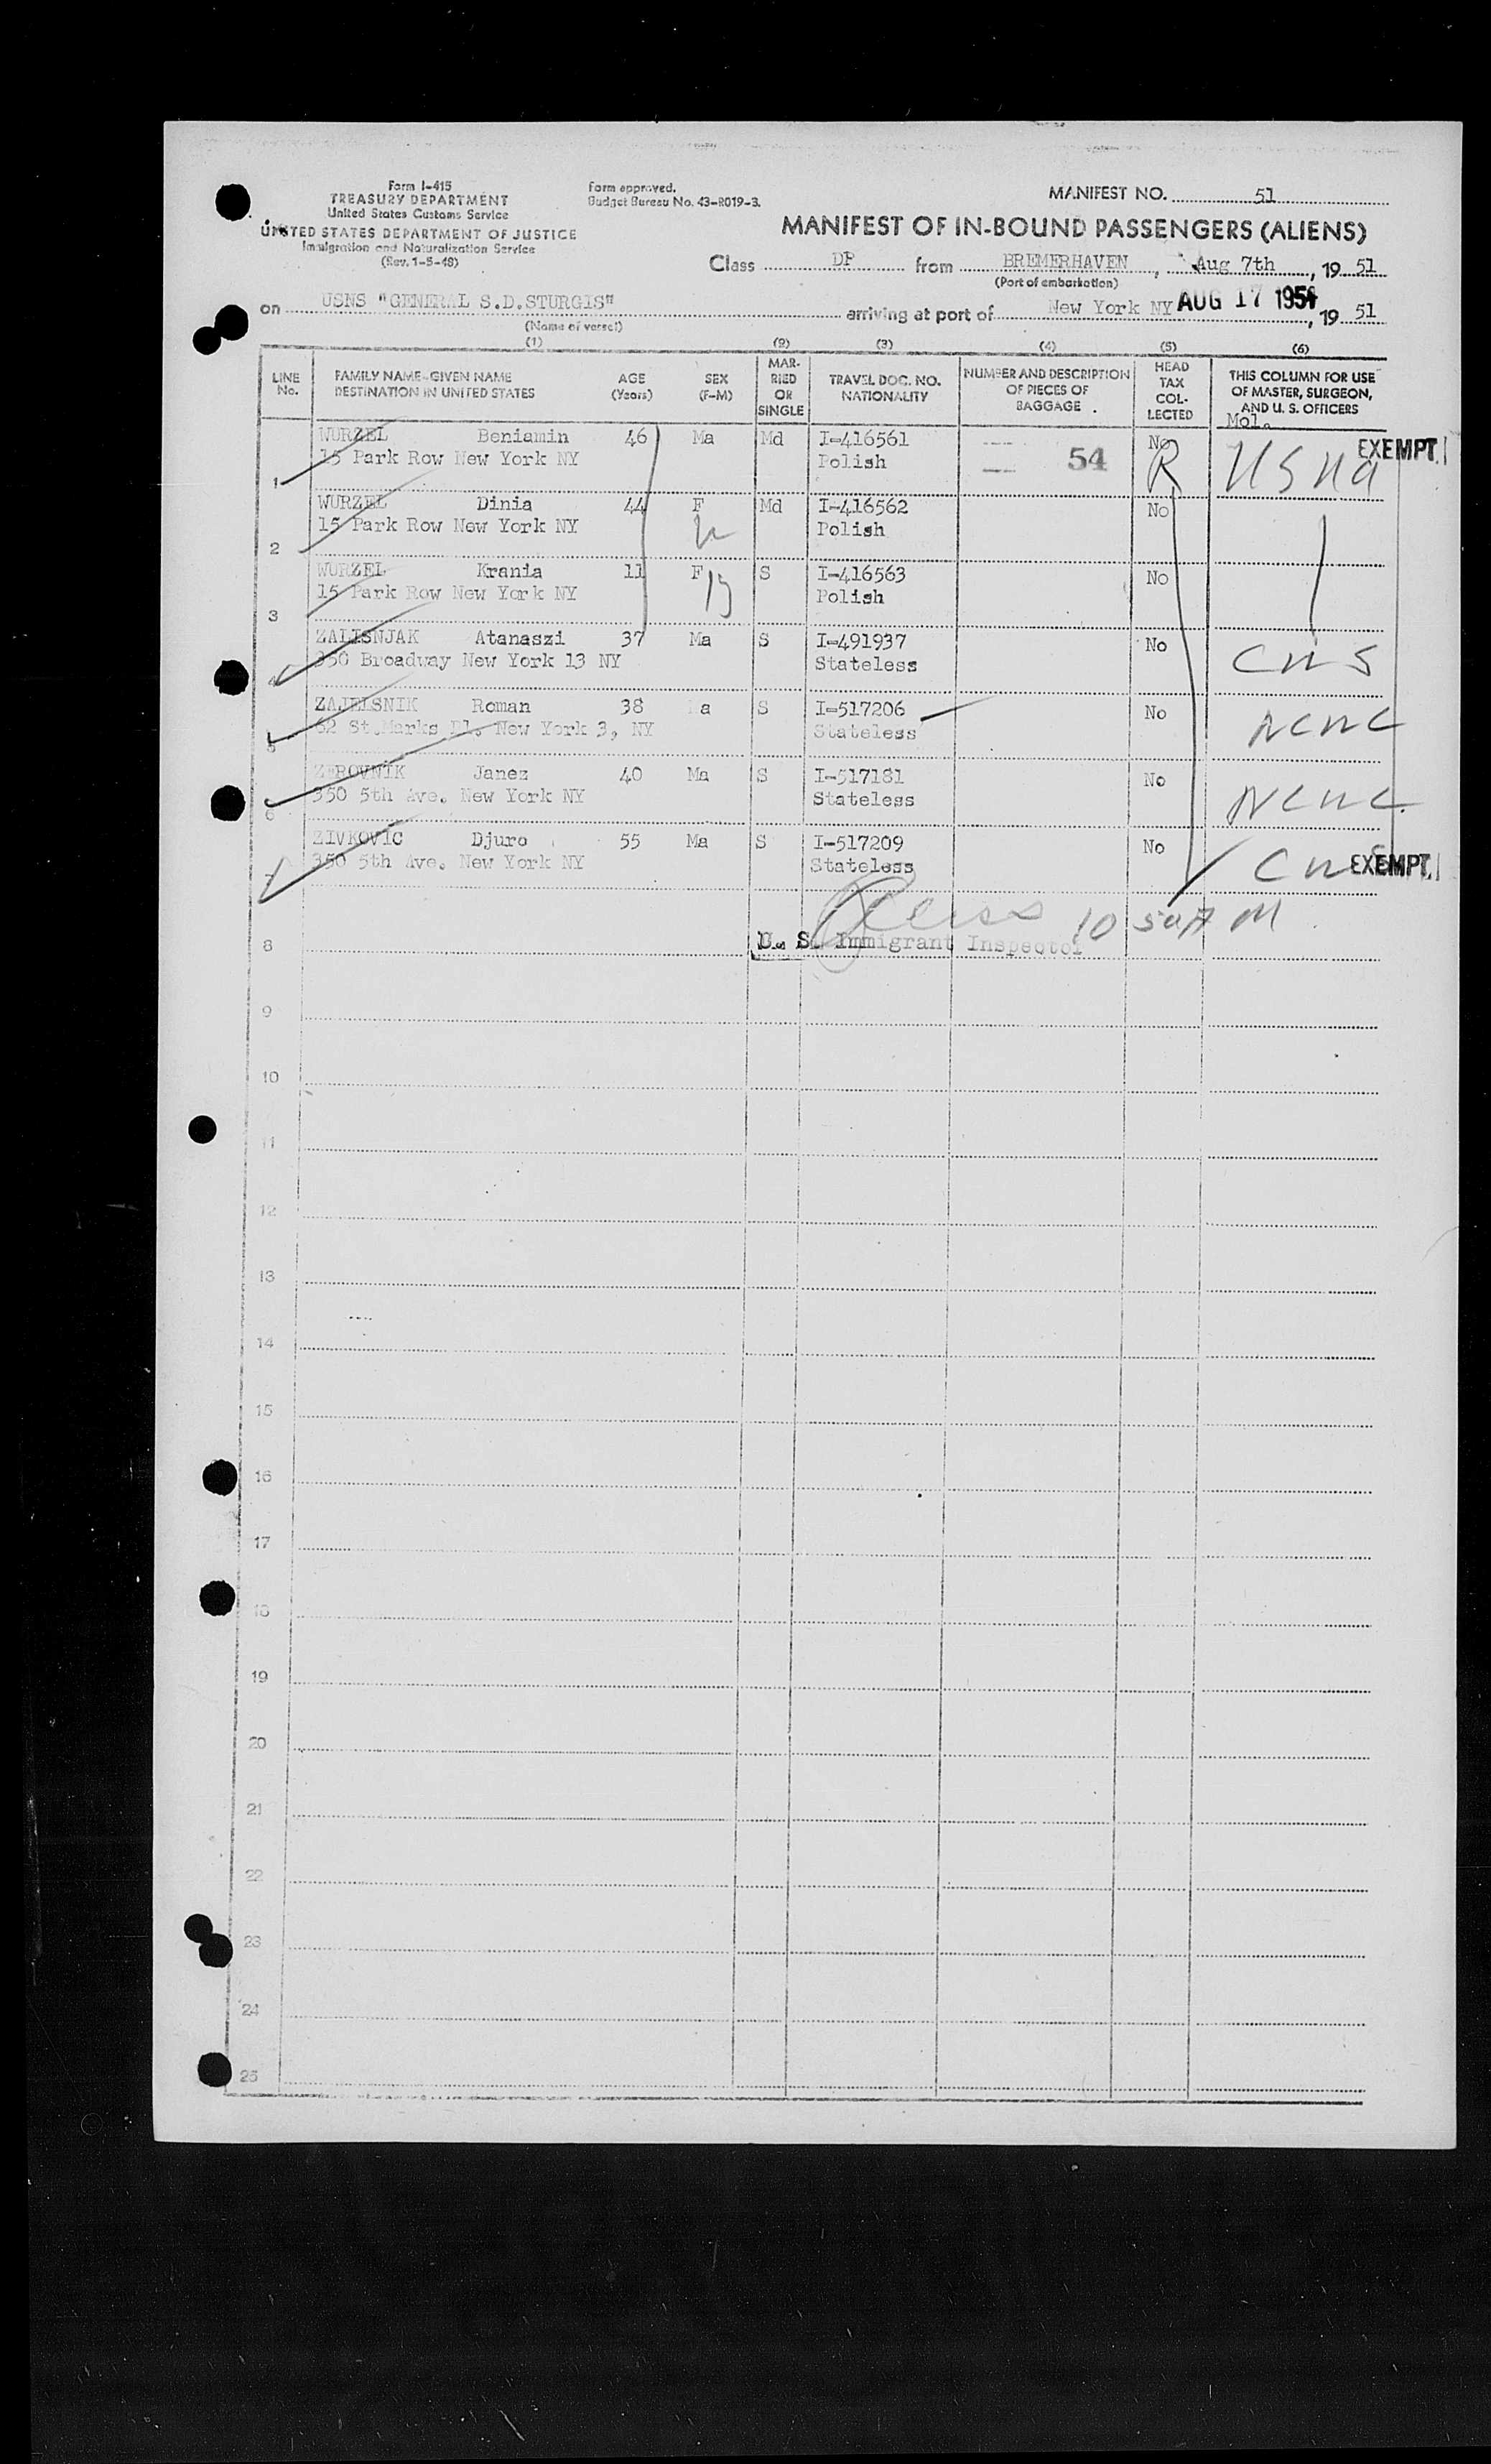 Form I-415
TREASURY DEPARTMENT
United States Customs Service
UNITED STATES DEPARTMENT OF JUSTICE
Immigration and Naturalization Service
(Rev. 1-5-48)
Form approved.
Budget Bureau No. 43-R019-3.
MANIFEST NO. 51
MANIFEST OF IN-BOUND PASSENGERS (ALIENS)
Class DP from BREMERHAVEN, Aug 7th, 19 51
(Port of embarkation)
on USNS "GENERAL S.D.STURGIS" arriving at port of New York NY AUG 17 1951, 19 51
(Name of vessel)
(1) (2) (3) (4) (5) (6)
LINE No.
FAMILY NAME-GIVEN NAME
DESTINATION IN UNITED STATES
AGE (Years)
SEX (F-M)
MAR-RIED OR SINGLE
TRAVEL DOC. NO. NATIONALITY
NUMBER AND DESCRIPTION OF PIECES OF BAGGAGE
HEAD TAX COL-LECTED
THIS COLUMN FOR USE OF MASTER, SURGEON, AND U. S. OFFICERS
Mol.
1 WURZEL Beniamin 46 Ma Md I-416561 54 No EXEMPT
15 Park Row New York NY Polish R USNA
2 WURZEL Dinia 44 F Md I-416562 No
15 Park Row New York NY Polish
3 WURZEL Krania 11 F S I-416563 No
15 Park Row New York NY Polish
4 ZALISNJAK Atanaszi 37 Ma S I-491937 No
350 Broadway New York 13 NY Stateless CWS
5 ZAJELSNIK Roman 38 Ma S I-517206 No
62 St.Marks Pl. New York 3, NY Stateless NCWC
6 ZEROVNIK Janez 40 Ma S I-517181 No
350 5th Ave. New York NY Stateless NCWC
7 ZIVKOVIC Djuro 55 Ma S I-517209 No
350 5th Ave. New York NY Stateless CWS EXEMPT
10 50 AM
8 U. S. Immigrant Inspector
9
10
11
12
13
14
15
16
17
18
19
20
21
22
23
24
25